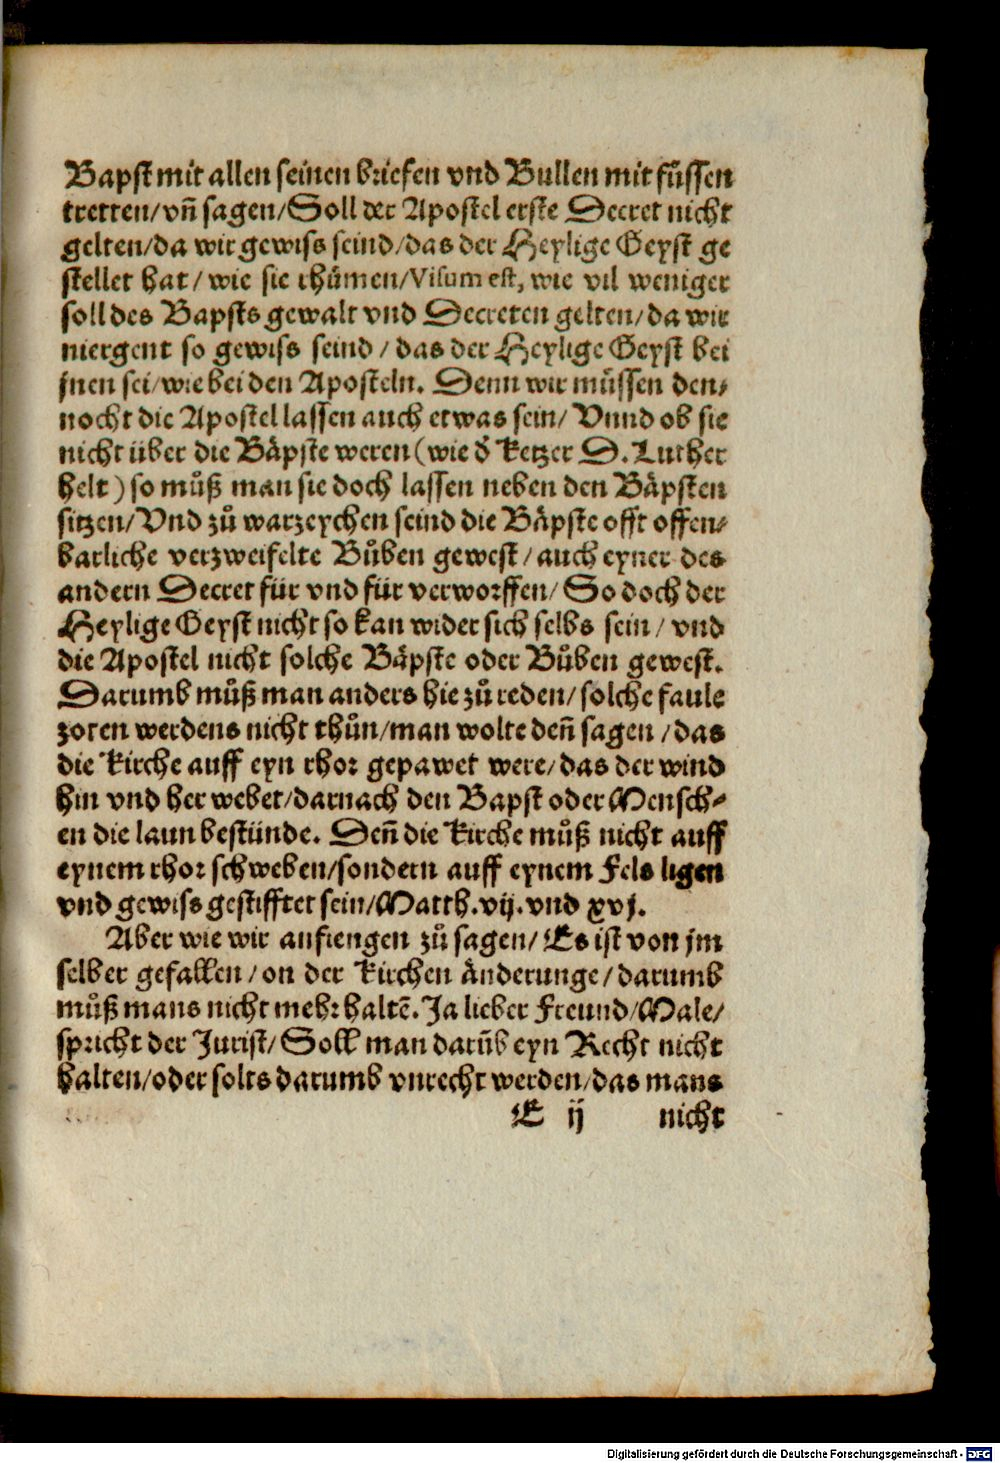 Bapst mit allen seinen briefen vnd Bullen mit fu̎ssen
tretten/vn̄ sagen/Soll der Apostel erste Decret nicht
gelten/da wir gewiss seind/das der Heylige Geyst ge
stellet hat/wie sie rhu̎men/Visum est, wie vil weniger
soll des Bapsts gewalt vnd Decreten gelten/da wir
niergent so gewiss seind/das der Heylige Geyst bei
jnen sei/wie bei den Aposteln. Denn wir mu̎ssen den⸗
nocht die Apostel lassen auch etwas sein/Vnnd ob sie
nicht über die Bäpste weren (wie d̕ ketzer S. Luther
helt) so můß man sie doch lassen neben den Bäpsten
sitzen/Vnd zů warzeychen seind die Bäpste offt offen⸗
barliche verzweifelte Bu̎ben gewest/auch eyner des
andern Decret für vnd für verworffen/So doch der
Heylige Geyst nicht so kan wider sich selbs sein/vnd
die Apostel nicht solche Bäpste oder Bu̎ben gewest.
Darumb můß man anders hie zů reden/solche faule
zoten werdens nicht thůn/man wolte den̄ sagen/das
die Kirche auff eyn rhor gepawet were/das der wind
hin vnd her webet/darnach den Bapst oder Mensch⸗
en die laun bestünde. Den̄ die Kirche můß nicht auff
eynem rhor schweben/sondern auff eynem Fels ligen
vnd gewiss gestifftet sein/Matth. vij. vnd xvj.
Aber wie wir anfiengen zů sagen/Es ist von jm
selber gefallen/on der Kirchen änderunge/darumb
můß mans nicht mehr haltē. Ja lieber Freund/Male/
spricht der Jurist/Soll man darūb eyn Recht nicht
halten/oder solts darumb vnrecht werden/das mans
E ij nicht
Digitalisierung gefördert durch die Deutsche Forschungsgemeinschaft - DFG